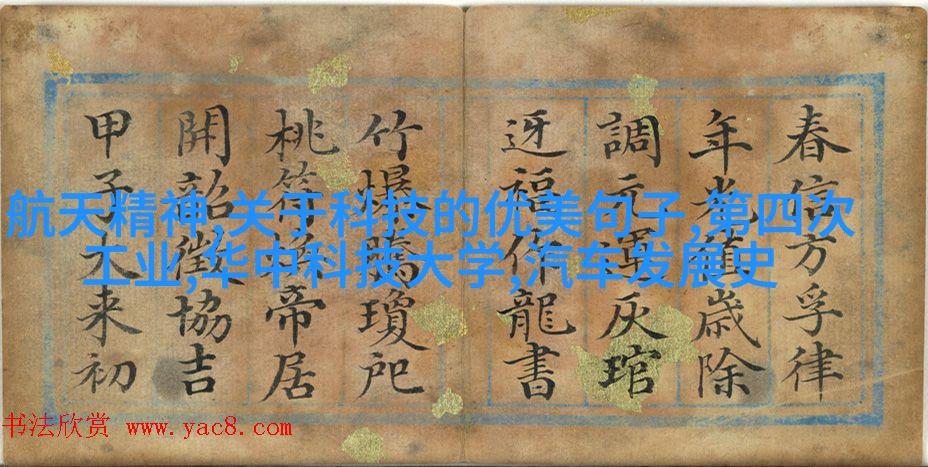 春信方孚律
年光歲除
調元運灰琯
迓福作龍書
竹爆騰瓊戺
桃符帝居
開韶徵協吉
甲子大来初
航天精神,关于科技的优美句子,第四次
工业,华中科技大学,汽车发展史
书法欣赏 www.yac8.com